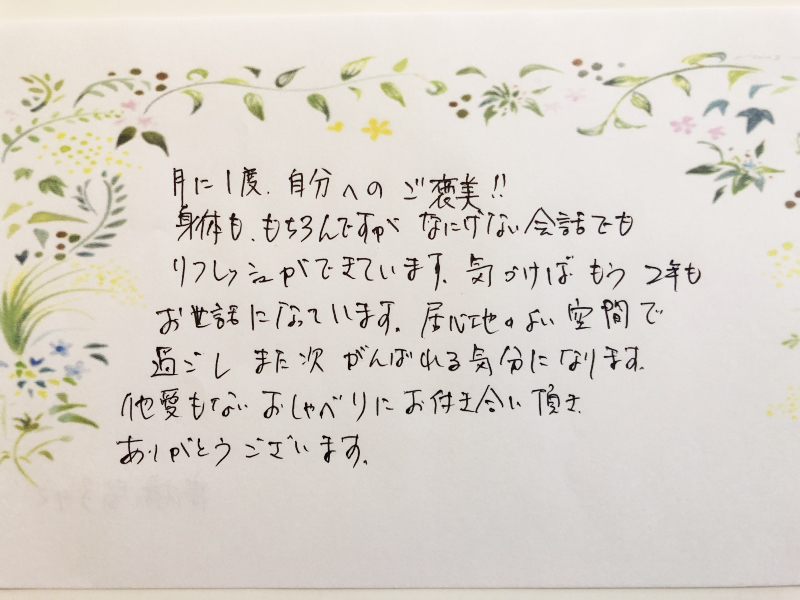 月に1度、自分へのご褒美!!
身体も、もちろんですが なにげない会話でも
リフレッシュができています。気づけば もう 2年も
お世話になっています。居心地のよい空間で
過ごし また次 がんばれる気分になります。
他愛もない おしゃべりに お付き合い頂き
ありがとうございます。